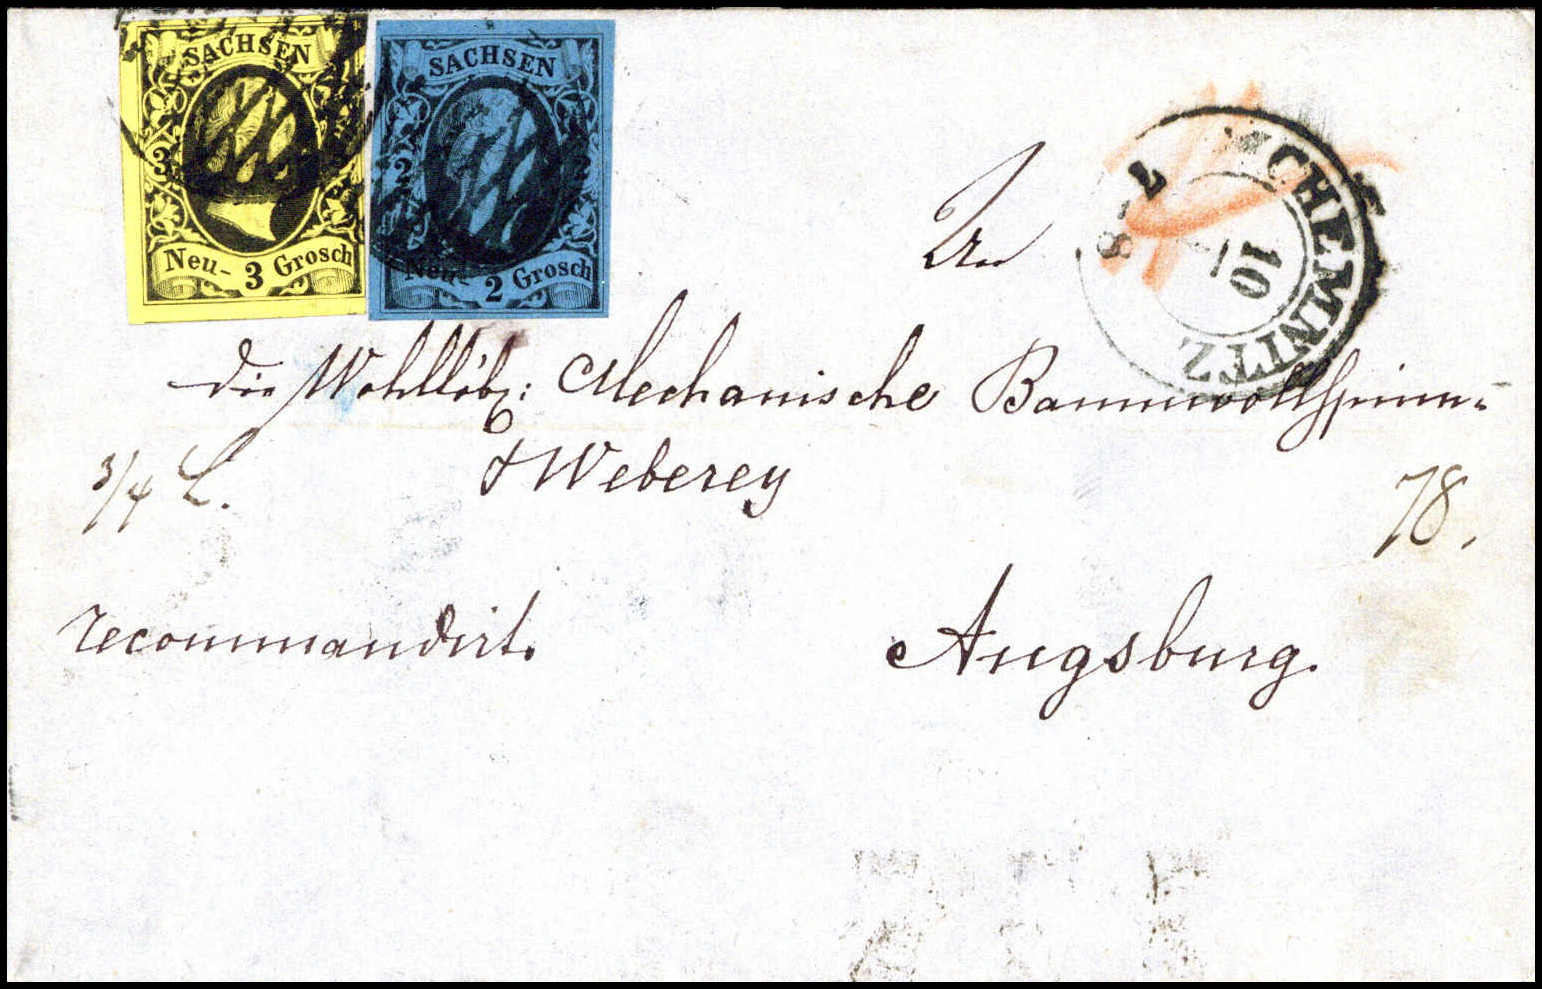 SACHSEN
Neu- 3 Grosch
3
SACHSEN
Neu- 2 Grosch
2 2
CHEMNITZ
10
7-8
An
die Wohllöbl: Mechanische Baumwollspinn-
& Weberey
3/4 L.
78.
recommandirt.
Augsburg.